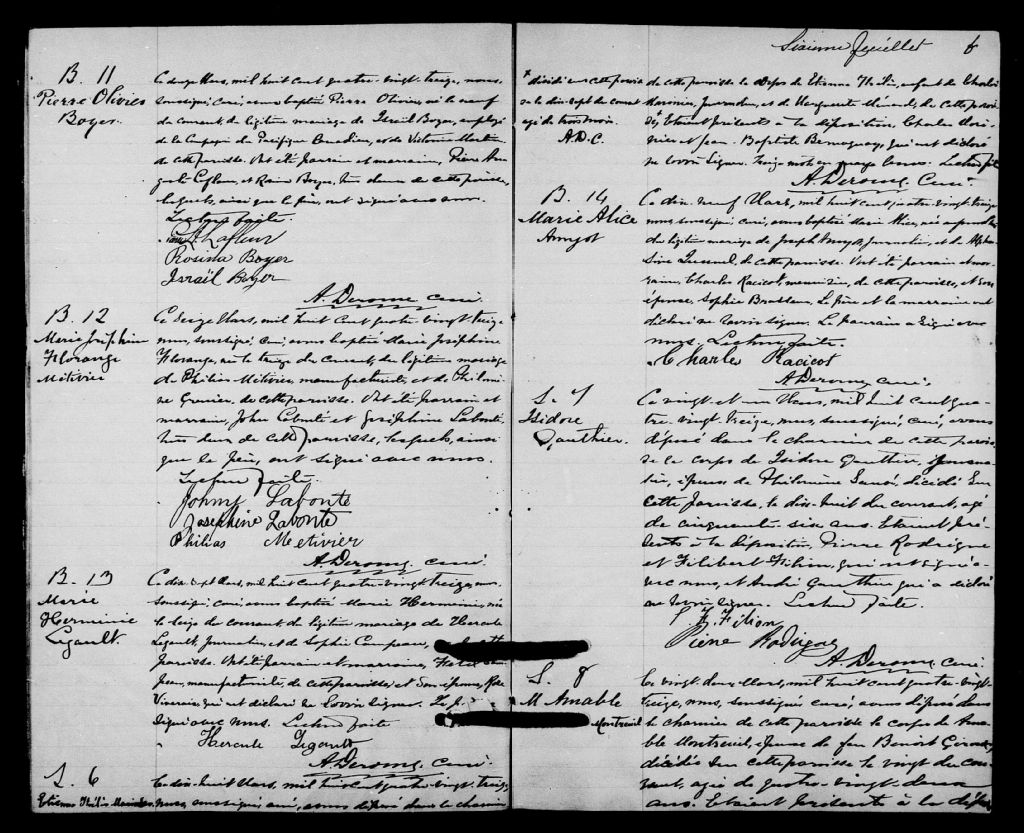 B. 11
Pierre Olivier
Boyer.
Ce douze Mars, mil huit cent quatre-vingt-treize, nous,
soussigné curé, avons baptisé Pierre Olivier, né le neuf
du courant, du légitime mariage de Israël Boyer, employé
de la Compagnie du Pacifique Canadien, et de
de cette paroisse. Ont été parrain et marraine, Pierre
et Rosina Boyer, tous deux de cette paroisse,
lesquels, ainsi que le père, ont signé avec nous.
Lecture faite.
Lafleur
Rosina Boyer
Israël Boyer
A. Derome, curé.
B. 12
Marie Joséphine
Florange
Métivier
Ce seize Mars, mil huit cent quatre-vingt-treize,
nous, soussigné curé, avons baptisé Marie Joséphine
Florange, née le treize du courant, du légitime mariage
de Philias Métivier, manufacturier, et de Philomène
Grenier, de cette paroisse. Ont été parrain et
marraine, John Labonté et Joséphine Labonté,
tous deux de cette paroisse, lesquels, ainsi
que le père, ont signé avec nous.
Lecture faite.
Johny Labonte
Josephine Labonte
Philias Metivier
A. Derome, curé.
B. 13
Marie
Herminie
Legault.
Ce dix-sept Mars, mil huit cent quatre-vingt-treize, nous,
soussigné curé, avons baptisé Marie Herminie, née
le seize du courant du légitime mariage de Hercule
Legault, Journalier, et de Sophie Campeau, de cette
paroisse. Ont été parrain et marraine,
Jean, manufacturier, de cette paroisse, et son épouse, Rose
qui ont déclaré ne savoir signer. Le père
signé avec nous. Lecture faite
Hercule Legault
A. Derome, curé.
S. 6
Etienne Félix
Ce dix-huit Mars, mil huit cent quatre-vingt-treize,
nous, soussigné curé, avons déposé dans le charnier
Sixième feuillet 6
+ décédé en cette paroisse
le dix-sept du courant
agé de trois mois
A.D.C.
de cette paroisse le corps de Etienne Félix, enfant de Charles
Journalier, et de Marguerite de cette paroisse
Etaient présents à la déposition, Charles
et Jean-Baptiste qui ont déclaré
ne savoir signer. Treize mots en marge bons. Lecture faite
A. Derome, curé.
B. 14
Marie Alice
Amyot
Ce dix-neuf Mars, mil huit cent quatre-vingt-treize
nous, soussigné curé, avons baptisé Marie Alice, née
du légitime mariage de Joseph Amyot, Journalier, et de
de cette paroisse. Ont été parrain et marraine,
Charles Racicot, menuisier, de cette paroisse, et son
épouse, Sophie Brasseau. Le père et la marraine ont
déclaré ne savoir signer. Le parrain a signé avec
nous. Lecture faite.
Charle Racicot
A. Derome, curé.
S. 7
Isidore
Gauthier.
Ce vingt et un Mars, mil huit cent quatre-
vingt-treize, nous, soussigné, curé, avons
déposé dans le charnier de cette paroisse
le corps de Isidore Gauthier,
époux de Philomène décédé en
cette paroisse, le dix-huit du courant, agé
de cinquante-six ans. Etaient présents
à la déposition, Pierre Rodrigue
et Filibert Filion, qui ont signé
avec nous, et André Gauthier qui a déclaré
ne savoir signer. Lecture faite.
F. Filion
Pierre Rodrigue
A. Derome, curé.
S. 8
M. Amable
Montreuil
Ce vingt-deux Mars, mil huit cent quatre-vingt-
treize, nous, soussigné curé, avons déposé dans
le charnier de cette paroisse le corps de Amable
Montreuil, épouse de feu Benoit Giroux,
décédée en cette paroisse le vingt du courant,
agée de quatre-vingt-deux
ans. Etaient présents à la dépo-